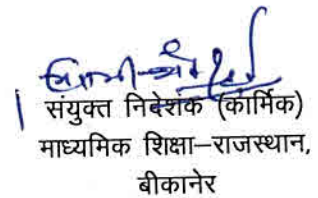 संयुक्त निदेशक (कार्मिक)
माध्यमिक शिक्षा–राजस्थान,
बीकानेर